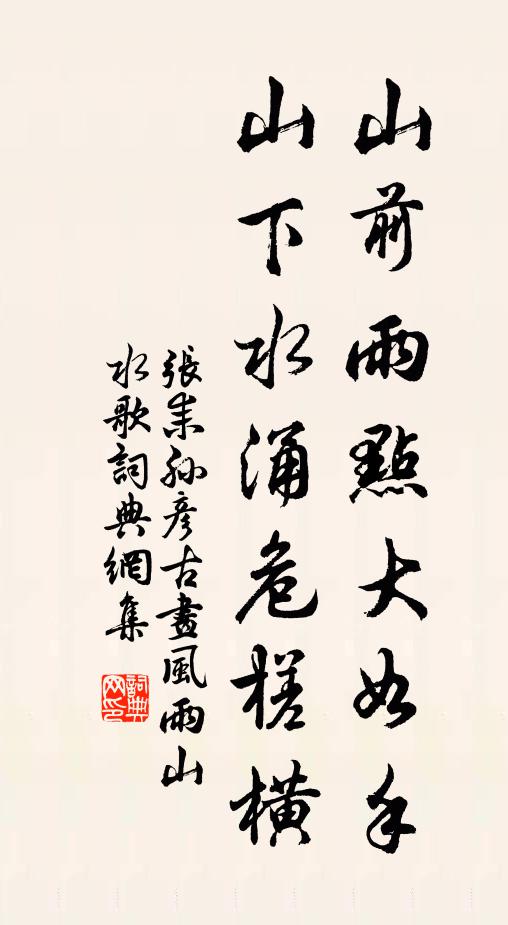 山前雨點大如手
山下水涌危槎橫
張耒孫彥古畫風雨山
水歌詞典網集
詞典
网印